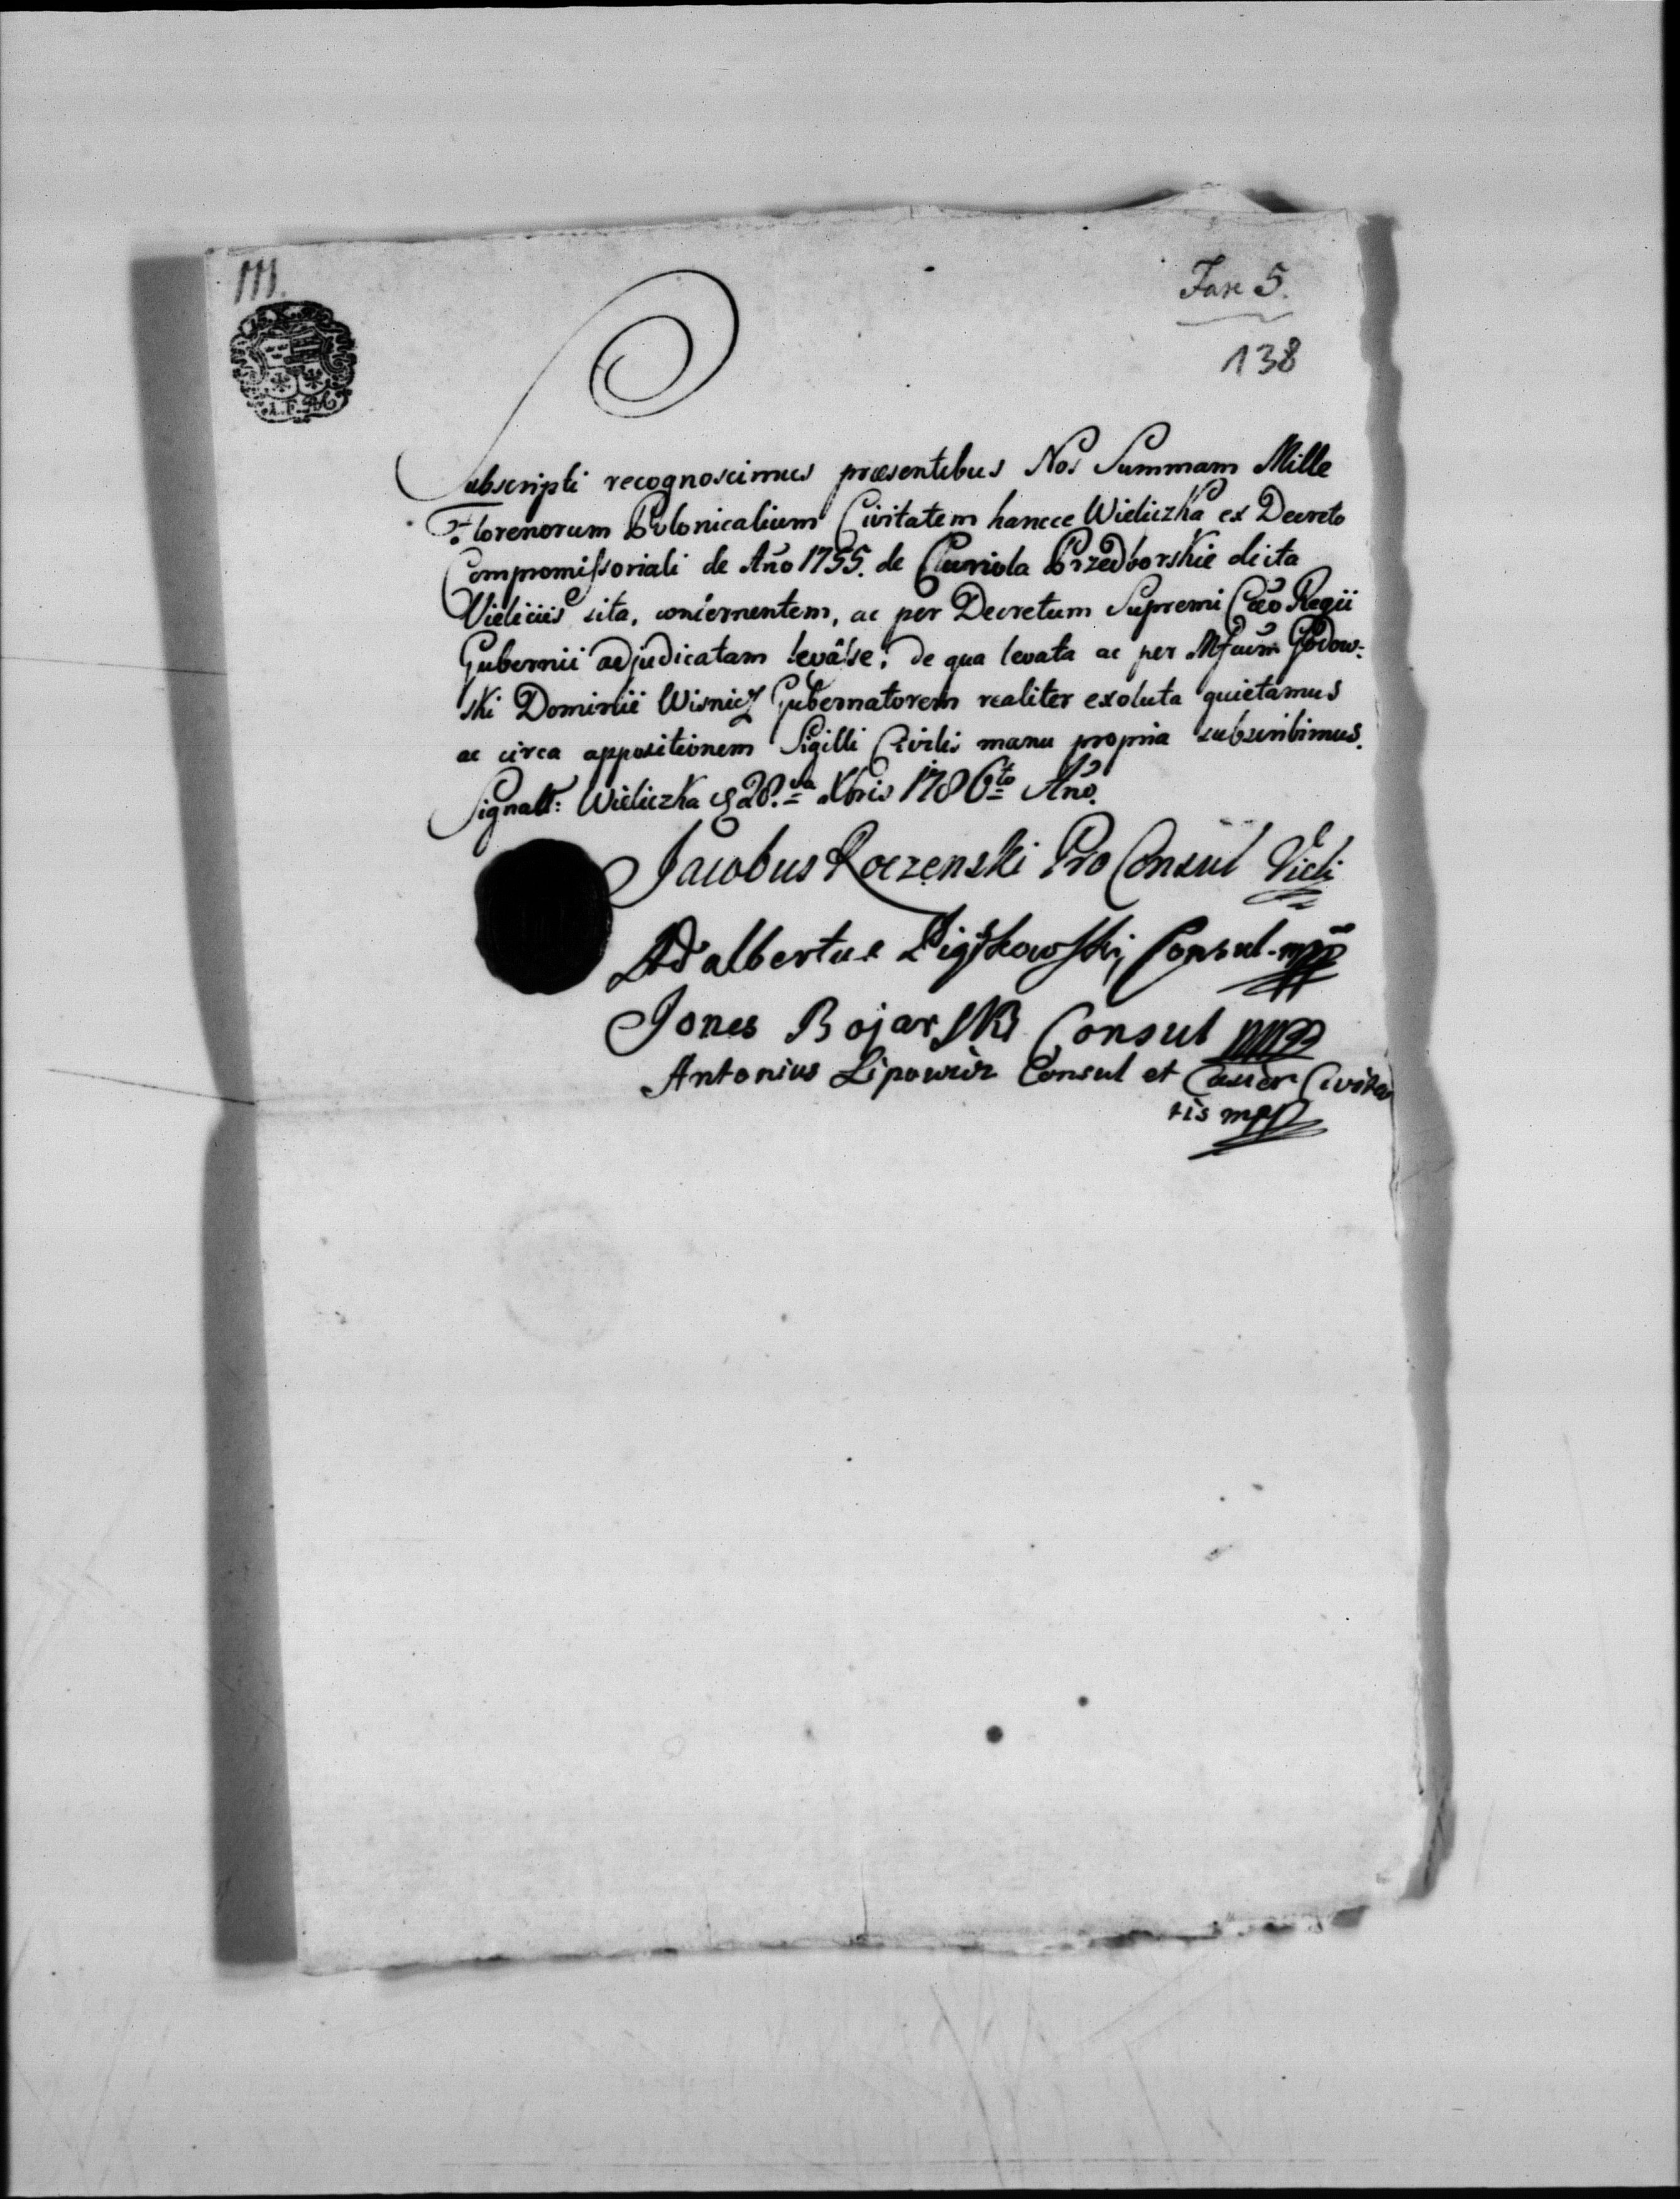 111.
Fasc 5.
138
Subscripti recognoscimus præsentibus Nos Summam Mille
Florenorum Polonicalium Civitatem hancce Wieliczka ex Decreto
Compromissoriali de Año 1755. de Curiola Przedborskie dicta
Vieliciis sita, concernentem, ac per Decretum Supremi Cæo Regii
Gubernii adjudicatam levâsse, de qua levata ac per Mfcum Godow:
ski Dominii Wisnicz Gubernatorem realiter exoluta quietamus
ac circa appositionem Sigilli Civilis manu propria subscribimus.
Signatt: Wieliczka 28.va Xbris 1786to Año.
Jacobus Roczenski Pro Consul Vieli
Adalbertus Consul mpp
Jones Bojarski Consul mpp
Antonius Lipowicz Consul et Cassier Civita
tis mpp